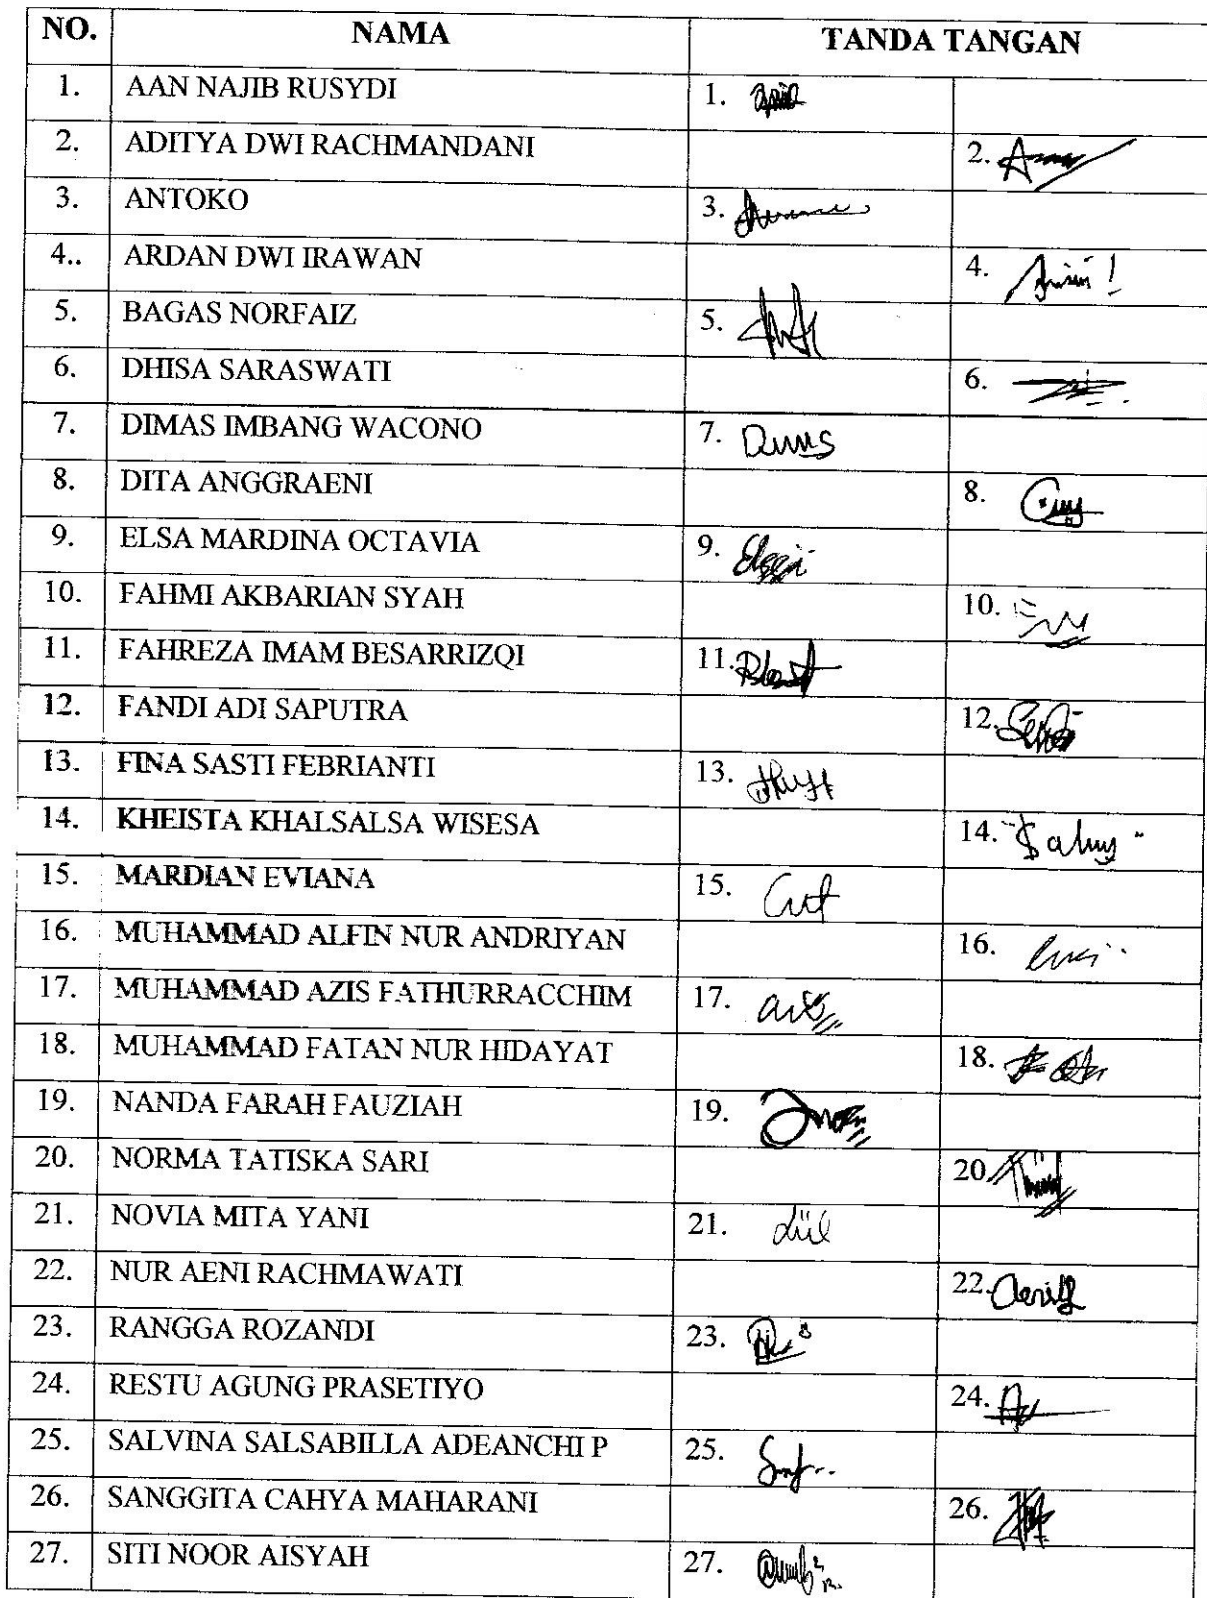 NO. NAMA TANDA TANGAN
1. AAN NAJIB RUSYDI 1.
2. ADITYA DWI RACHMANDANI 2.
3. ANTOKO 3.
4.. ARDAN DWI IRAWAN 4.
5. BAGAS NORFAIZ 5.
6. DHISA SARASWATI 6.
7. DIMAS IMBANG WACONO 7.
8. DITA ANGGRAENI 8.
9. ELSA MARDINA OCTAVIA 9.
10. FAHMI AKBARIAN SYAH 10.
11. FAHREZA IMAM BESARRIZQI 11.
12. FANDI ADI SAPUTRA 12.
13. FINA SASTI FEBRIANTI 13.
14. KHEISTA KHALSALSA WISESA 14.
15. MARDIAN EVIANA 15.
16. MUHAMMAD ALFIN NUR ANDRIYAN 16.
17. MUHAMMAD AZIS FATHURRACCHIM 17.
18. MUHAMMAD FATAN NUR HIDAYAT 18.
19. NANDA FARAH FAUZIAH 19.
20. NORMA TATISKA SARI 20.
21. NOVIA MITA YANI 21.
22. NUR AENI RACHMAWATI 22.
23. RANGGA ROZANDI 23.
24. RESTU AGUNG PRASETIYO 24.
25. SALVINA SALSABILLA ADEANCHI P 25.
26. SANGGITA CAHYA MAHARANI 26.
27. SITI NOOR AISYAH 27.